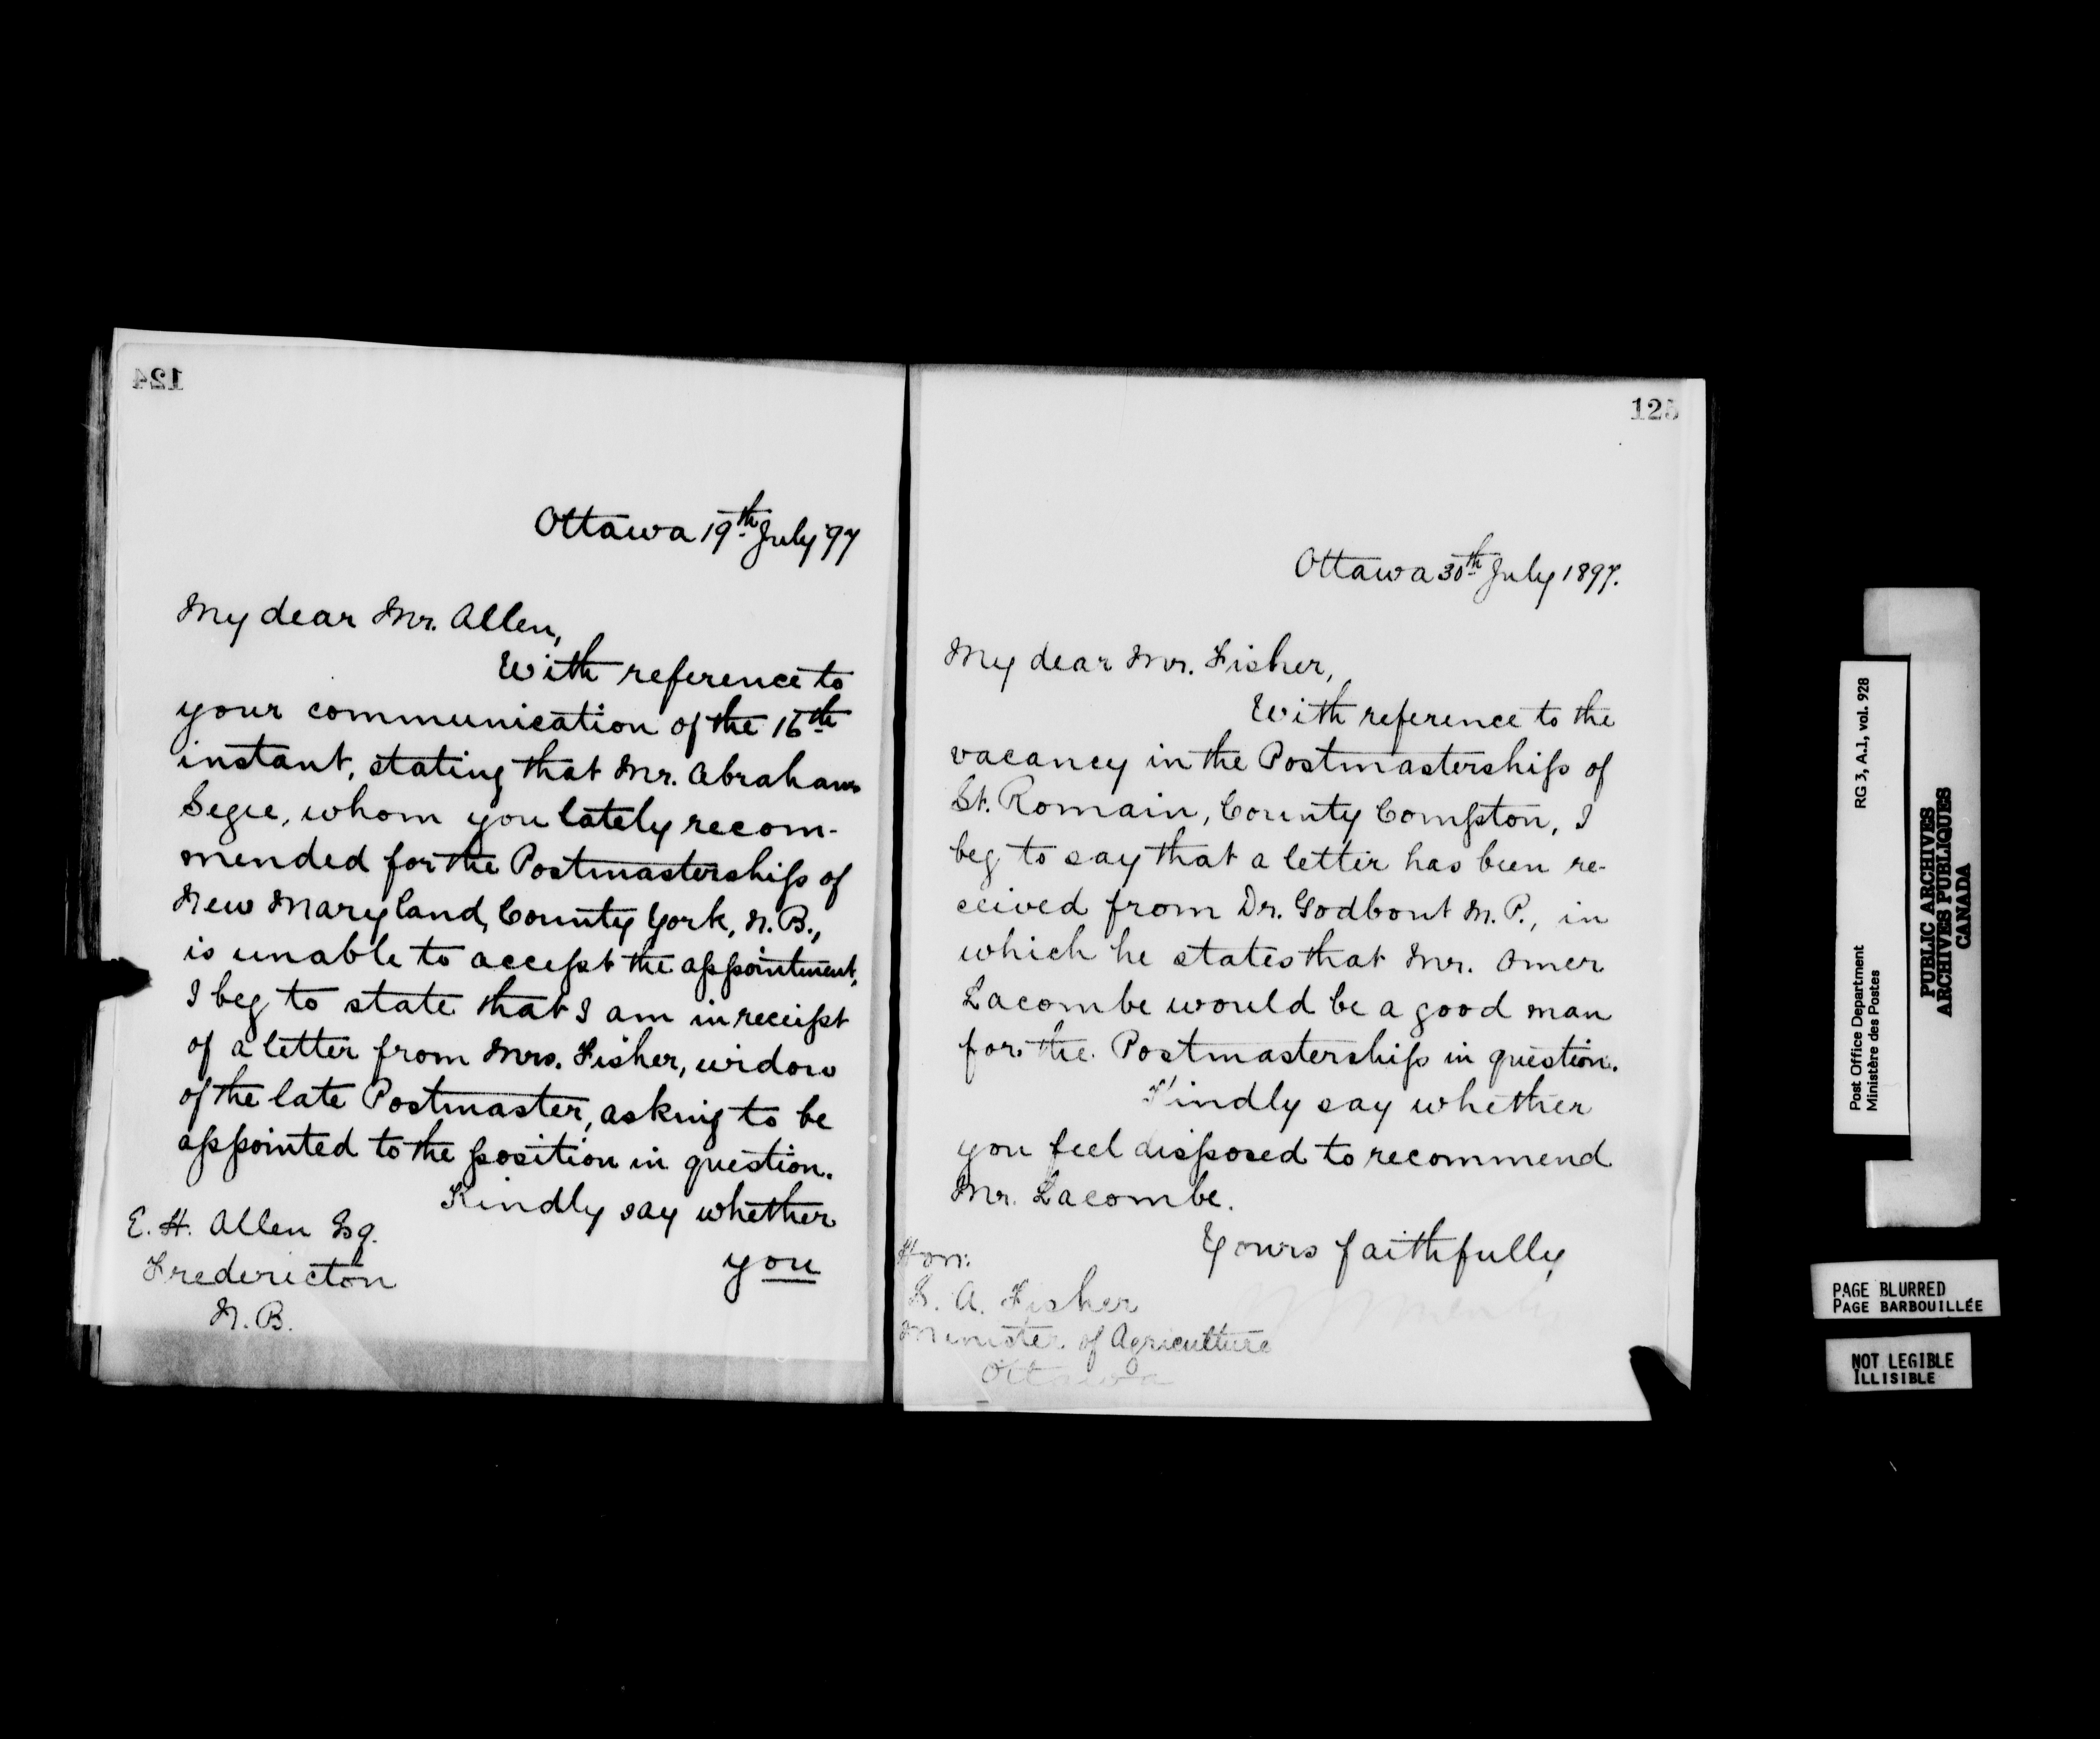 124
Ottawa 19th July '97
My dear Mr. Allen,
With reference to
your communication of the 16th
instant, stating that Mr. Abraham
Segee, whom you lately recom-
mended for the Postmastership of
New Maryland, County York, N.B.,
is unable to accept the appointment,
I beg to state that I am in receipt
of a letter from Mrs. Fisher, widow
of the late Postmaster, asking to be
appointed to the position in question.
Kindly say whether
you
E. H. Allen Esq.
Fredericton
N.B.
125
Ottawa 30th July 1897.
My dear Mr. Fisher,
With reference to the
vacancy in the Postmastership of
St. Romain, County Compton, I
beg to say that a letter has been re-
ceived from Dr. Godbout M.P., in
which he states that Mr. Omer
Lacombe would be a good man
for the Postmastership in question.
Kindly say whether
you feel disposed to recommend
Mr. Lacombe.
Yours faithfully
Hon:
S. A. Fisher
Minister of Agriculture
Ottawa
RG 3, A.1, vol. 928
Post Office Department
Ministère des Postes
PUBLIC ARCHIVES
ARCHIVES PUBLIQUES
CANADA
PAGE BLURRED
PAGE BARBOUILLÉE
NOT LEGIBLE
ILLISIBLE